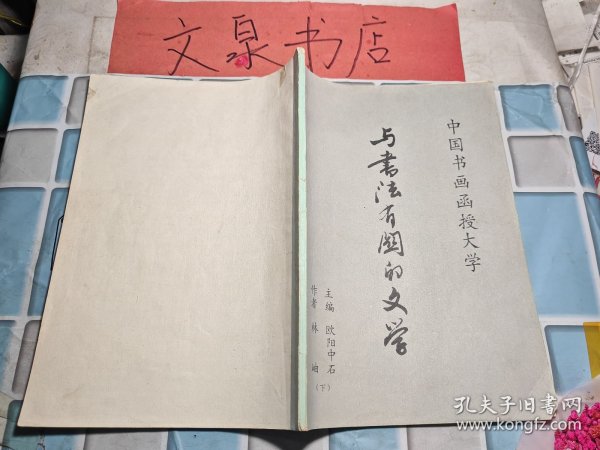 文泉书店
中国书画函授大学
与书法有关的文学
主编 欧阳中石
作者 林岫
(下)
孔夫子旧书网
www.kongfz.com